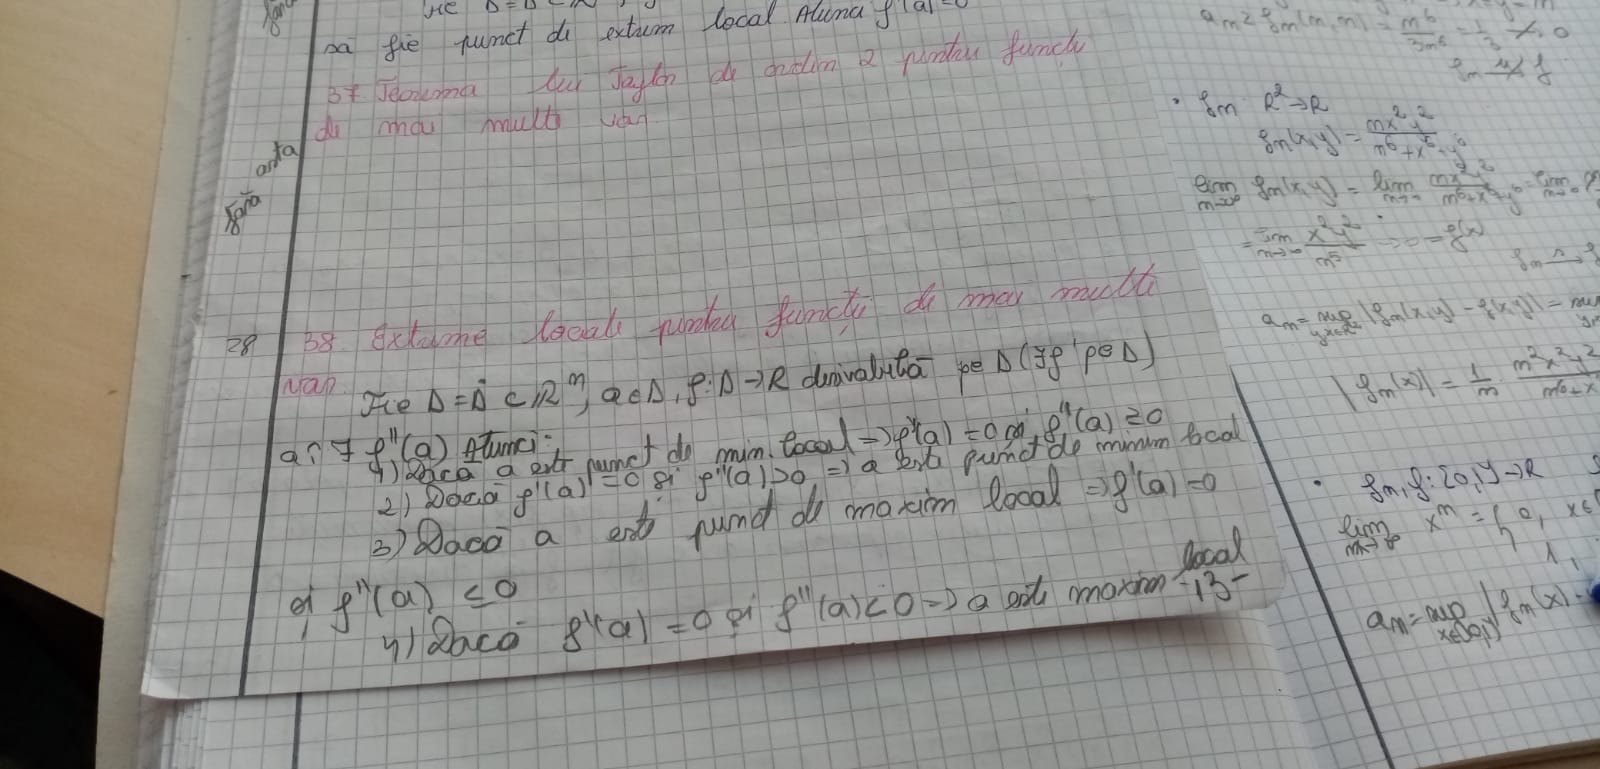 să fie punct de extrem local Atunci f'(a)=0
37 Teorema lui Taylor de ordin 2 pentru funcții
de mai multe var
fără asta
28 38 Extreme locale pentru funcții de mai multe
var
Fie D=D̊ ⊂ R^n, a∈D, f:D→R derivabilă pe D (∃f' pe D)
aî ∃ f''(a) Atunci:
1) Dacă a este punct de min. local ⇒ f'(a)=0 și f''(a) ≥0
2) Dacă f'(a)=0 și f''(a)>0 ⇒ a este punct de minim local
3) Dacă a este punct de maxim local ⇒ f'(a)=0
și f''(a) ≤0
4) Dacă f'(a)=0 și f''(a)<0 ⇒ a este maxim local
-13-
a_n ≥ f_n(n,n) = n^6/3n^6 = 1/3 ↛ 0
f_n f
• f_n R²→R
f_n(x,y) = nx²y²/n^6+x^6+y^6
lim n→∞ f_n(x,y) = lim n→∞ nx²y²/n^6+x^6+y^6 = lim n→∞
= lim n→∞ x²y²/n^5 = 0 = f(x)
f_n → f
a_n = sup |f_n(x,y) - f(x,y)| = sup
|f_n(x)| = 1/n · n²x²y²/n^6+x
• f_n, f: [0,1]→R
lim n→∞ x^n = { 0, x∈
1,
a_n = sup x∈[0,1] |f_n(x) -